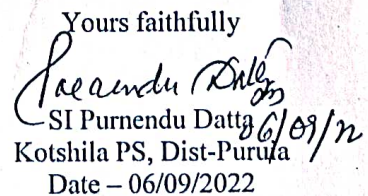 Yours faithfully
Purnendu Datta
SI Purnendu Datta 06/09/22
Kotshila PS, Dist-Purula
Date – 06/09/2022